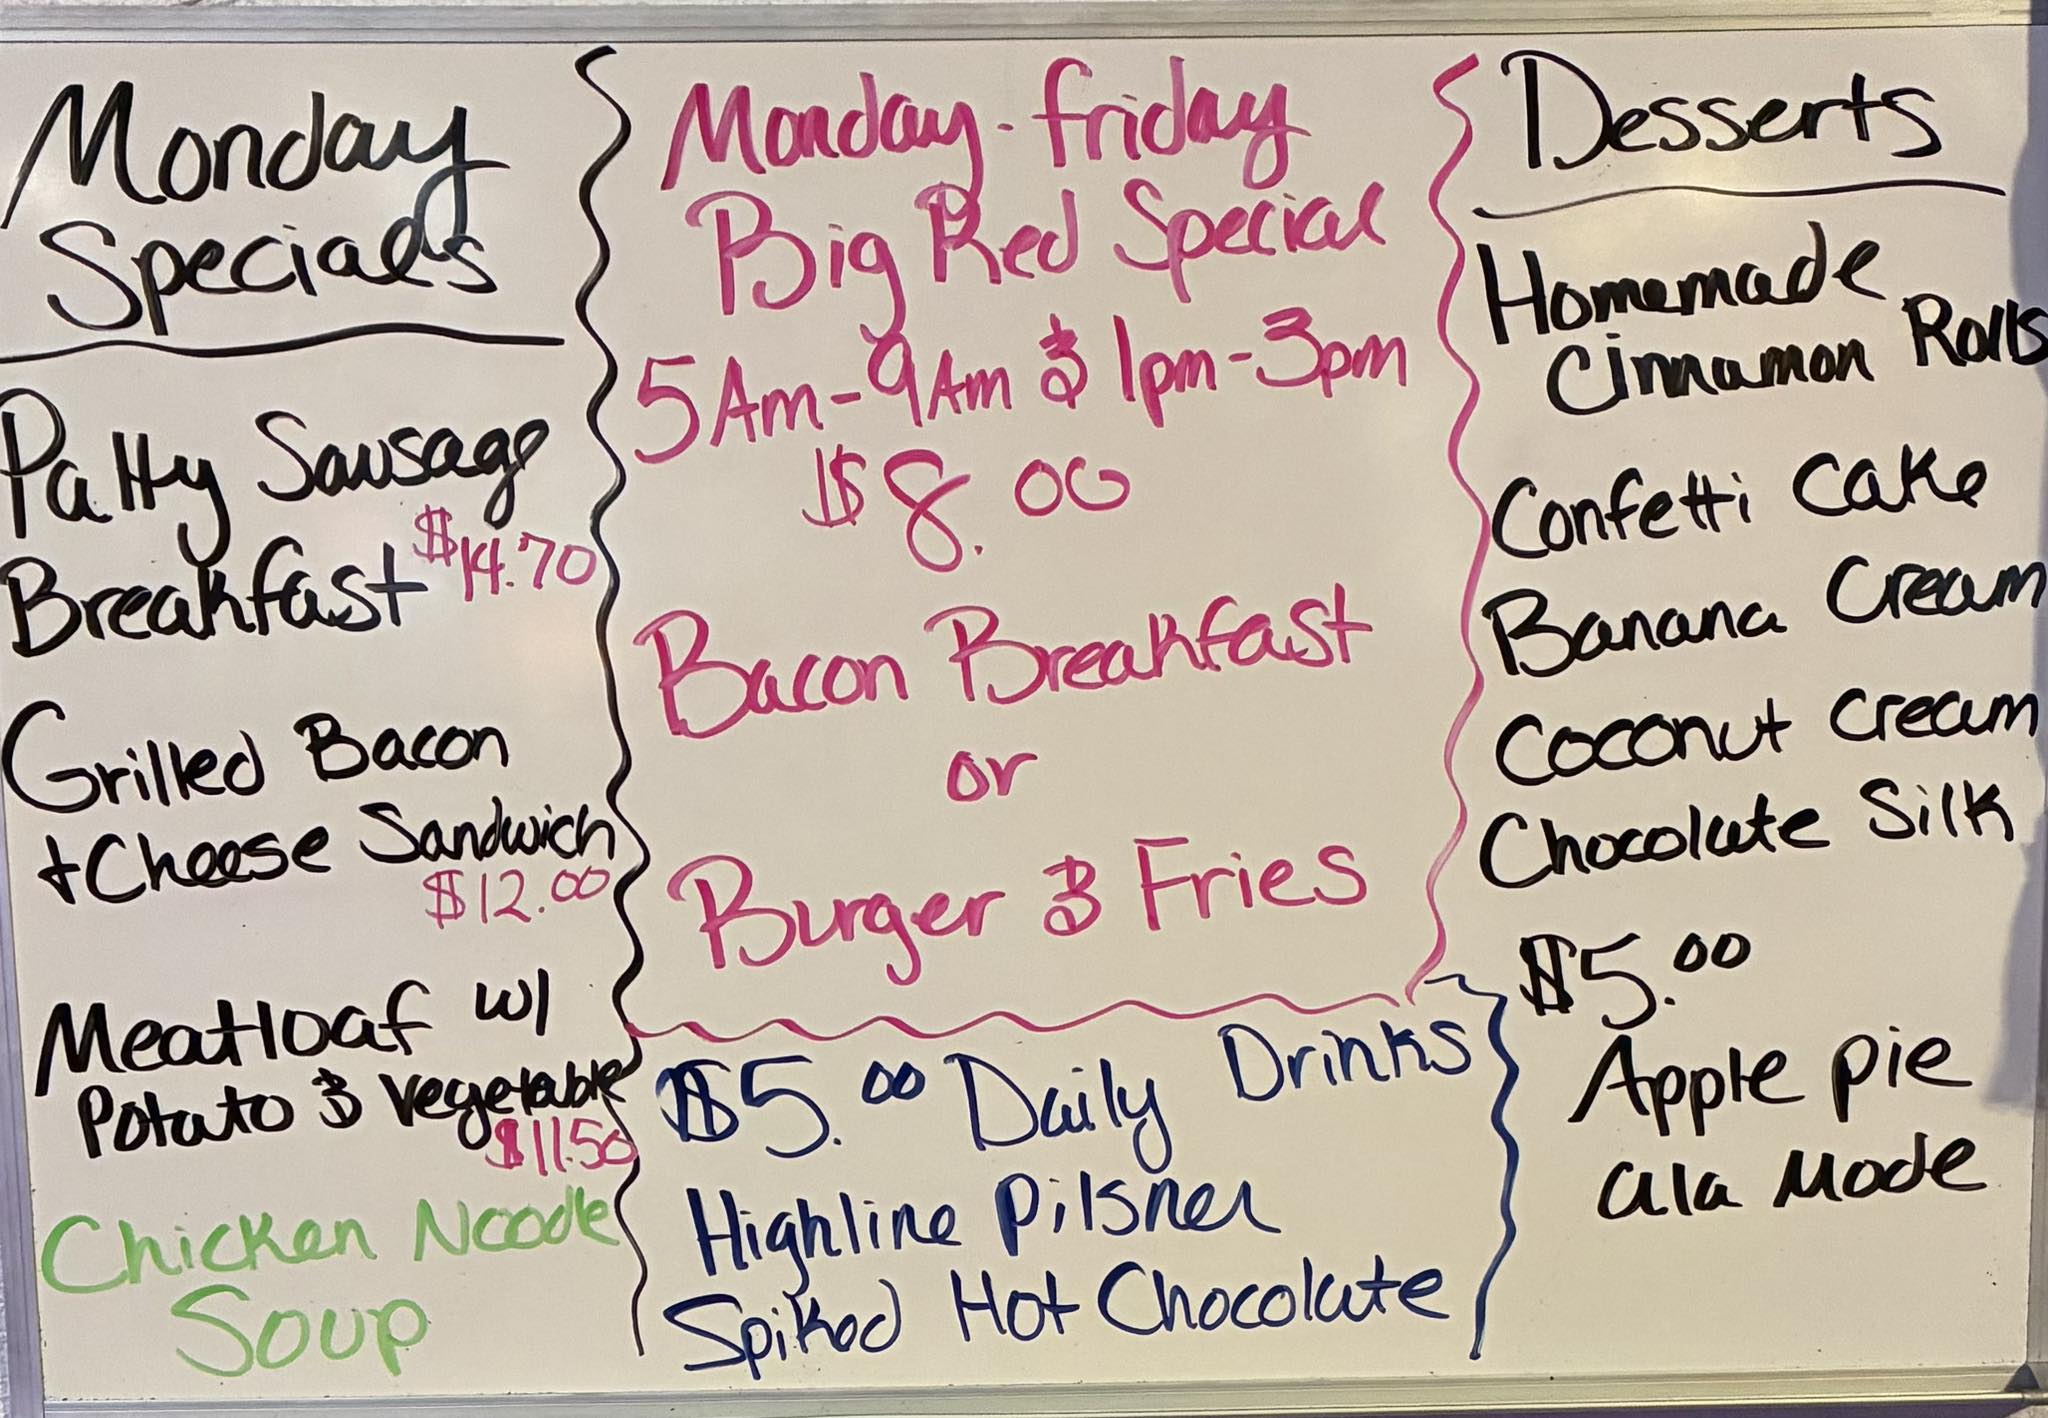 Monday
Specials
Patty Sausage
Breakfast $14.70
Grilled Bacon
+ Cheese Sandwich
$12.00
Meatloaf w/
Potato & Vegetable
$11.50
Chicken Noodle
Soup
Monday - Friday
Big Red Special
5Am-9Am & 1pm-3pm
$8.00
Bacon Breakfast
or
Burger & Fries
$5.00 Daily Drinks
Highline Pilsner
Spiked Hot Chocolate
Desserts
Homemade
Cinnamon Rolls
Confetti Cake
Banana Cream
Coconut Cream
Chocolate Silk
$5.00
Apple Pie
ala Mode